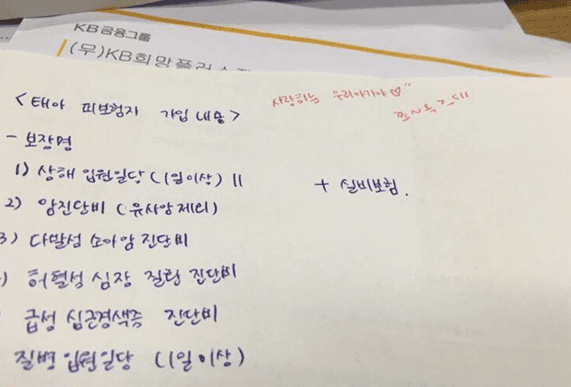 KB금융그룹
(무)KB희망플러스
<태아 피보험자 가입 내용>
사랑하는 우리아가야♡"
- 보장명
1) 상해 입원일당 (1일이상) 11
+ 실비보험.
2) 암진단비 (유사암제외)
3) 다발성 소아암 진단비
) 허혈성 심장 질환 진단비
급성 심근경색증 진단비
질병 입원일당 (1일이상)